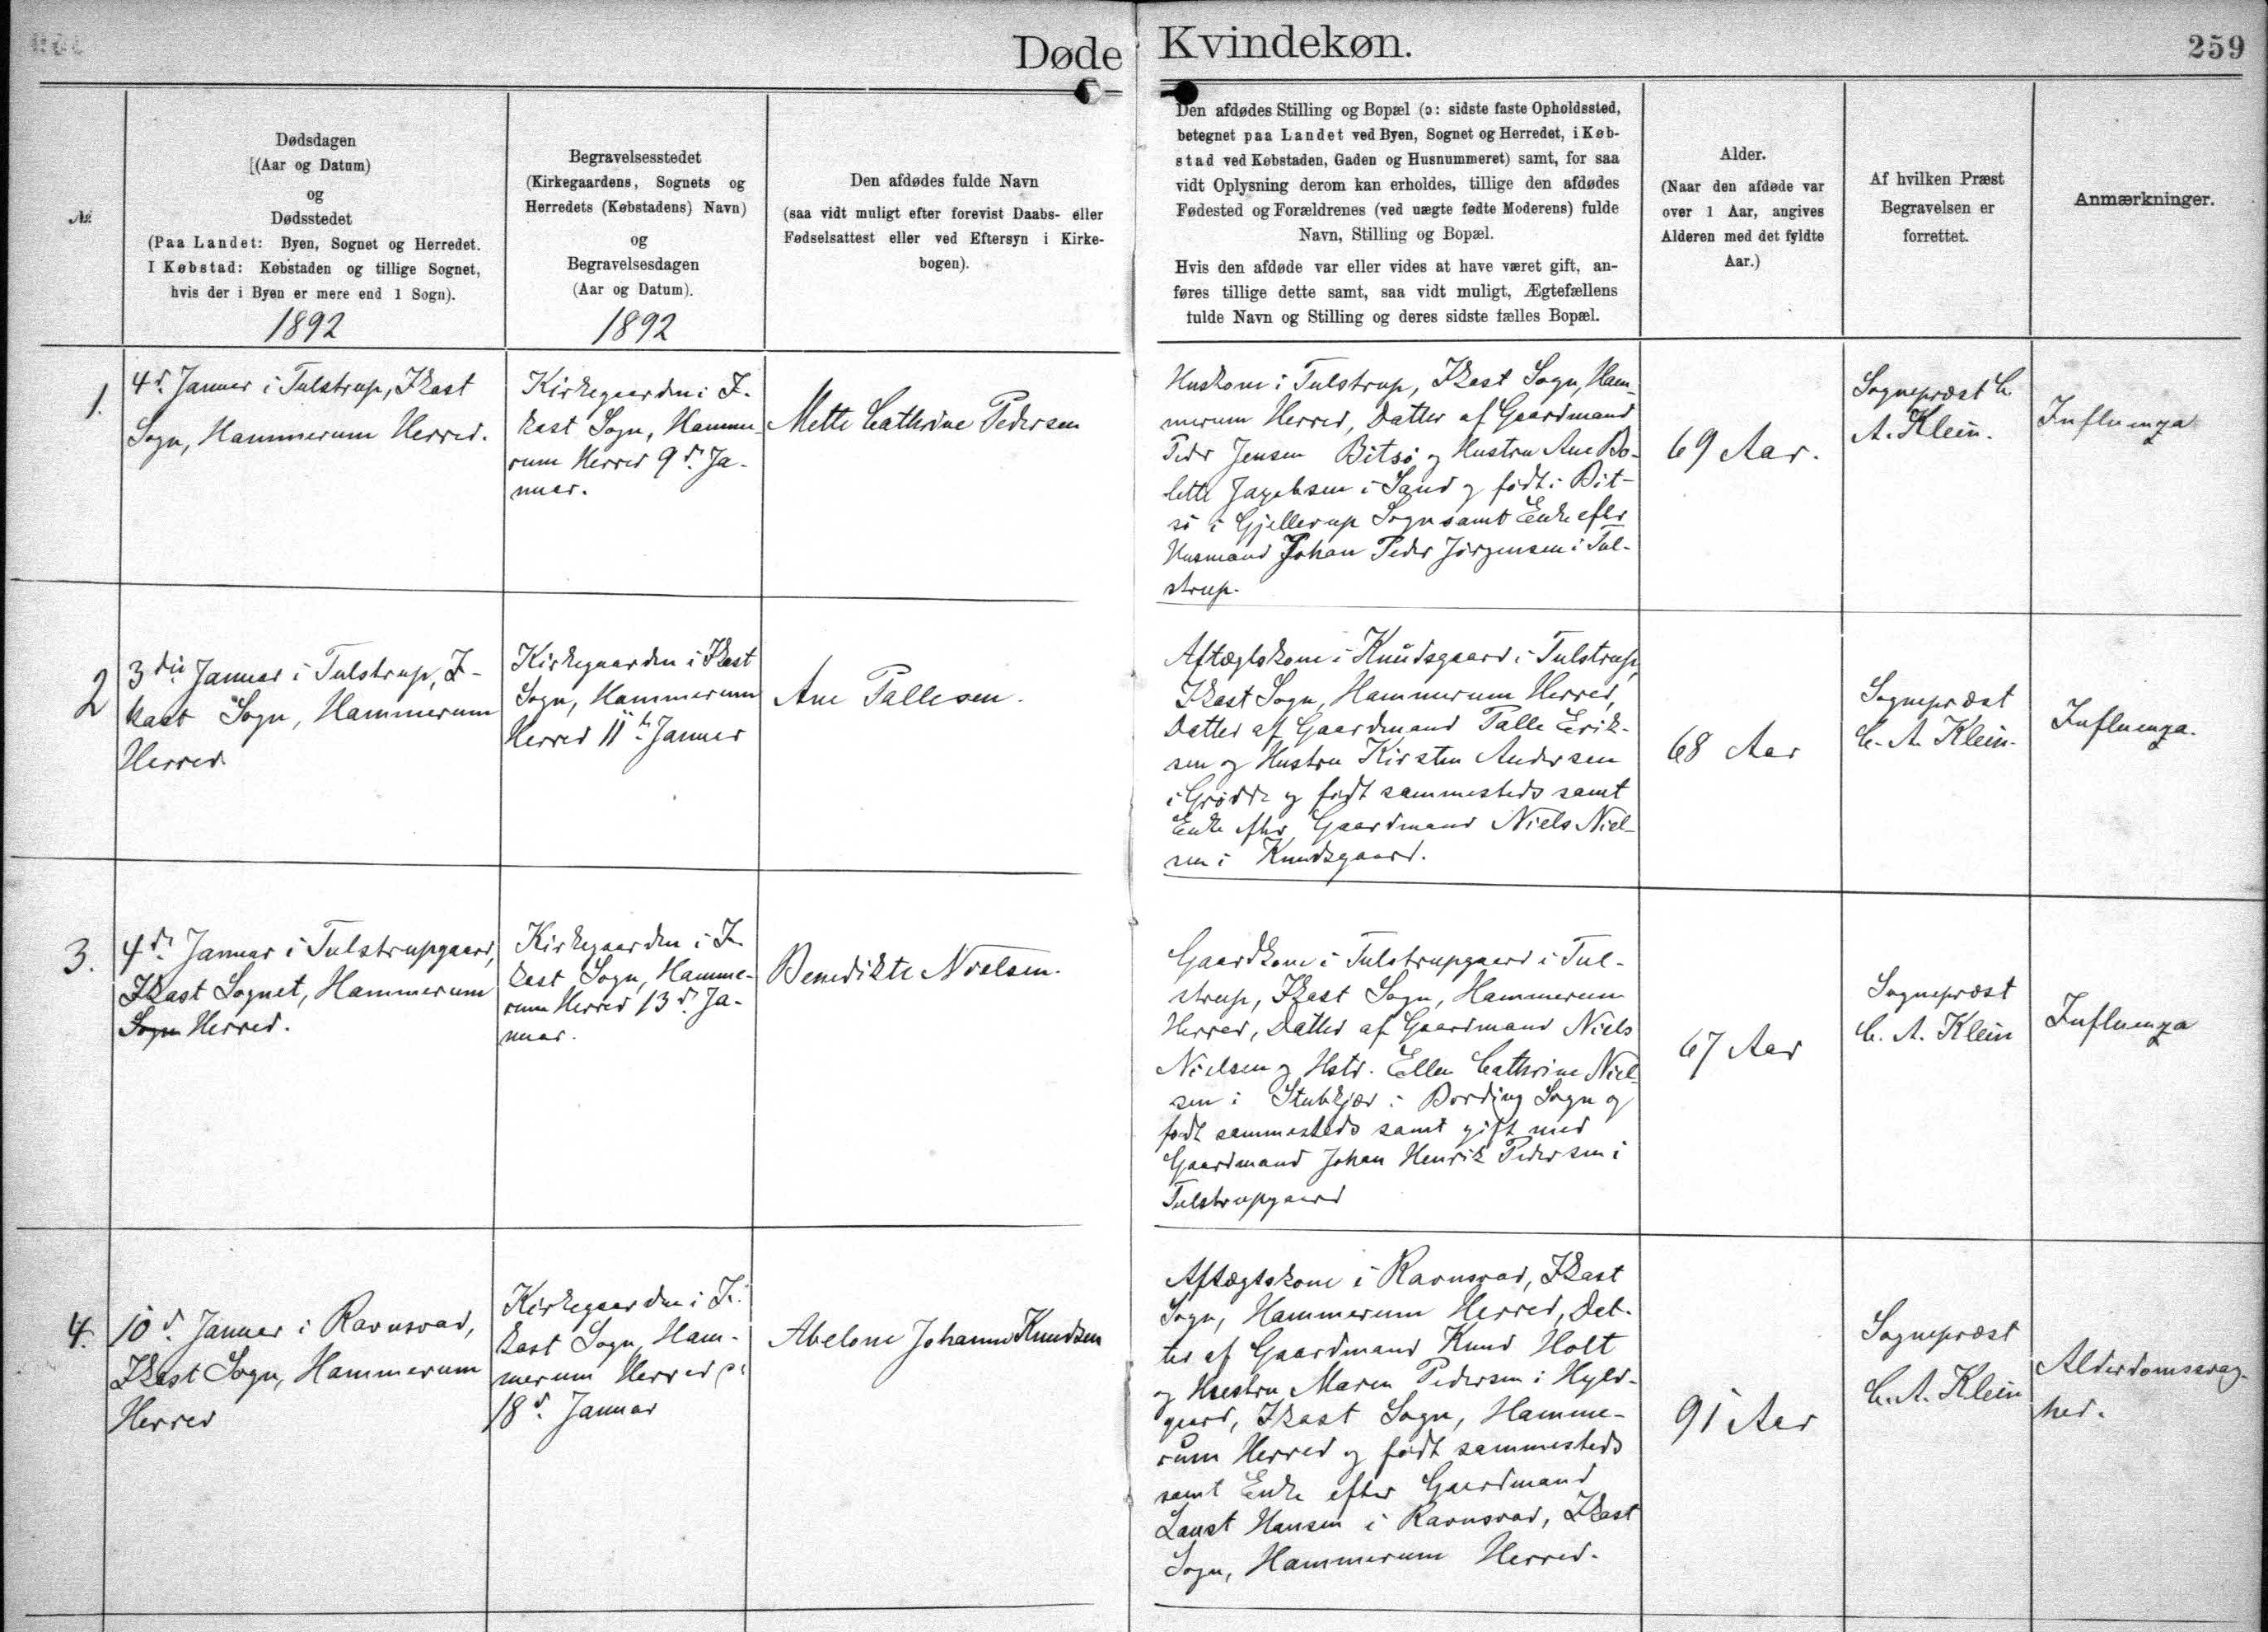 Døde Kvindekøn.
259
№
Dødsdagen
(Aar og Datum)
og
Dødsstedet
(Paa Landet: Byen, Sognet og Herredet.
I Købstad: Købstaden og tillige Sognet,
hvis der i Byen er mere end 1 Sogn).
1892
Begravelsesstedet
(Kirkegaardens, Sognets og
Herredets (Købstadens) Navn)
og
Begravelsesdagen
(Aar og Datum).
1892
Den afdødes fulde Navn
(saa vidt muligt efter forevist Daabs- eller
Fødselsattest eller ved Eftersyn i Kirke-
bogen).
Den afdødes Stilling og Bopæl (ɔ: sidste faste Opholdssted,
betegnet paa Landet ved Byen, Sognet og Herredet, i Køb-
stad ved Købstaden, Gaden og Husnummeret) samt, for saa
vidt Oplysning derom kan erholdes, tillige den afdødes
Fødested og Forældrenes (ved uægte fødte Moderens) fulde
Navn, Stilling og Bopæl.
Hvis den afdøde var eller vides at have været gift, an-
føres tillige dette samt, saa vidt muligt, Ægtefællens
fulde Navn og Stilling og deres sidste fælles Bopæl.
Alder.
(Naar den afdøde var
over 1 Aar, angives
Alderen med det fyldte
Aar.)
Af hvilken Præst
Begravelsen er
forrettet.
Anmærkninger.
1.
4d. Januar i Tulstrup, Ikast
Sogn, Hammerum Herred.
Kirkegaarden i I-
kast Sogn, Hamme-
rum Herred 9d. Ja-
nuar.
Mette Cathrine Pedersen
Huskone i Tulstrup, Ikast Sogn, Ham-
merum Herred, Datter af Gaardmand
Peder Jensen Bitsø og Hustru Ane Bo-
lette Jacobsen i Sand og født i Bit-
sø i Gjellerup Sogn samt Enke efter
Husmand Johan Peder Jørgensen i Tul-
strup.
69 Aar.
Sognepræst C.
A. Klein.
Influenza
2
3die Januar i Tulstrup, I-
kast Sogn, Hammerum
Herred
Kirkegaarden i Ikast
Sogn, Hammerum
Herred 11te Januar
Ane Pallesen.
Aftægtskone i Knudsgaard i Tulstrup,
Ikast Sogn, Hammerum Herred,
Datter af Gaardmand Palle Erik-
sen og Hustru Kirsten Andersen
i Grødde og født sammesteds samt
Enke efter Gaardmand Niels Niel-
sen i Knudsgaard.
68 Aar
Sognepræst
C. A. Klein.
Influenza.
3.
4de Januar i Tulstrupgaard,
Ikast Sognet, Hammerum
Sogn Herred.
Kirkegaarden i I-
kast Sogn, Hamme-
rum Herred 13d. Ja-
nuar.
Benedikte Nielsen.
Gaardkone i Tulstrupgaard i Tul-
strup, Ikast Sogn, Hammerum
Herred, Datter af Gaardmand Niels
Nielsen og Hstr. Ellen Cathrine Niel-
sen i Stubkjær i Bording Sogn og
født sammesteds samt gift med
Gaardmand Johan Henrik Pedersen i
Tulstrupgaard
67 Aar
Sognepræst
C. A. Klein
Influenza
4.
10d. Januar i Ravnsvad,
Ikast Sogn, Hammerum
Herred
Kirkegaarden i I-
kast Sogn, Ham-
merum Herred
18d. Januar
Abelone Johanne Knudsen
Aftægtskone i Ravnsvad, Ikast
Sogn, Hammerum Herred, Dat-
ter af Gaardmand Knud Holt
og Hustru Maren Pedersen i Hyld-
gaard, Ikast Sogn, Hamme-
rum Herred og født sammesteds
samt Enke efter Gaardmand
Laust Hansen i Ravnsvad, Ikast
Sogn, Hammerum Herred.
91 Aar
Sognepræst
C. A. Klein
Alderdomssvag-
hed.